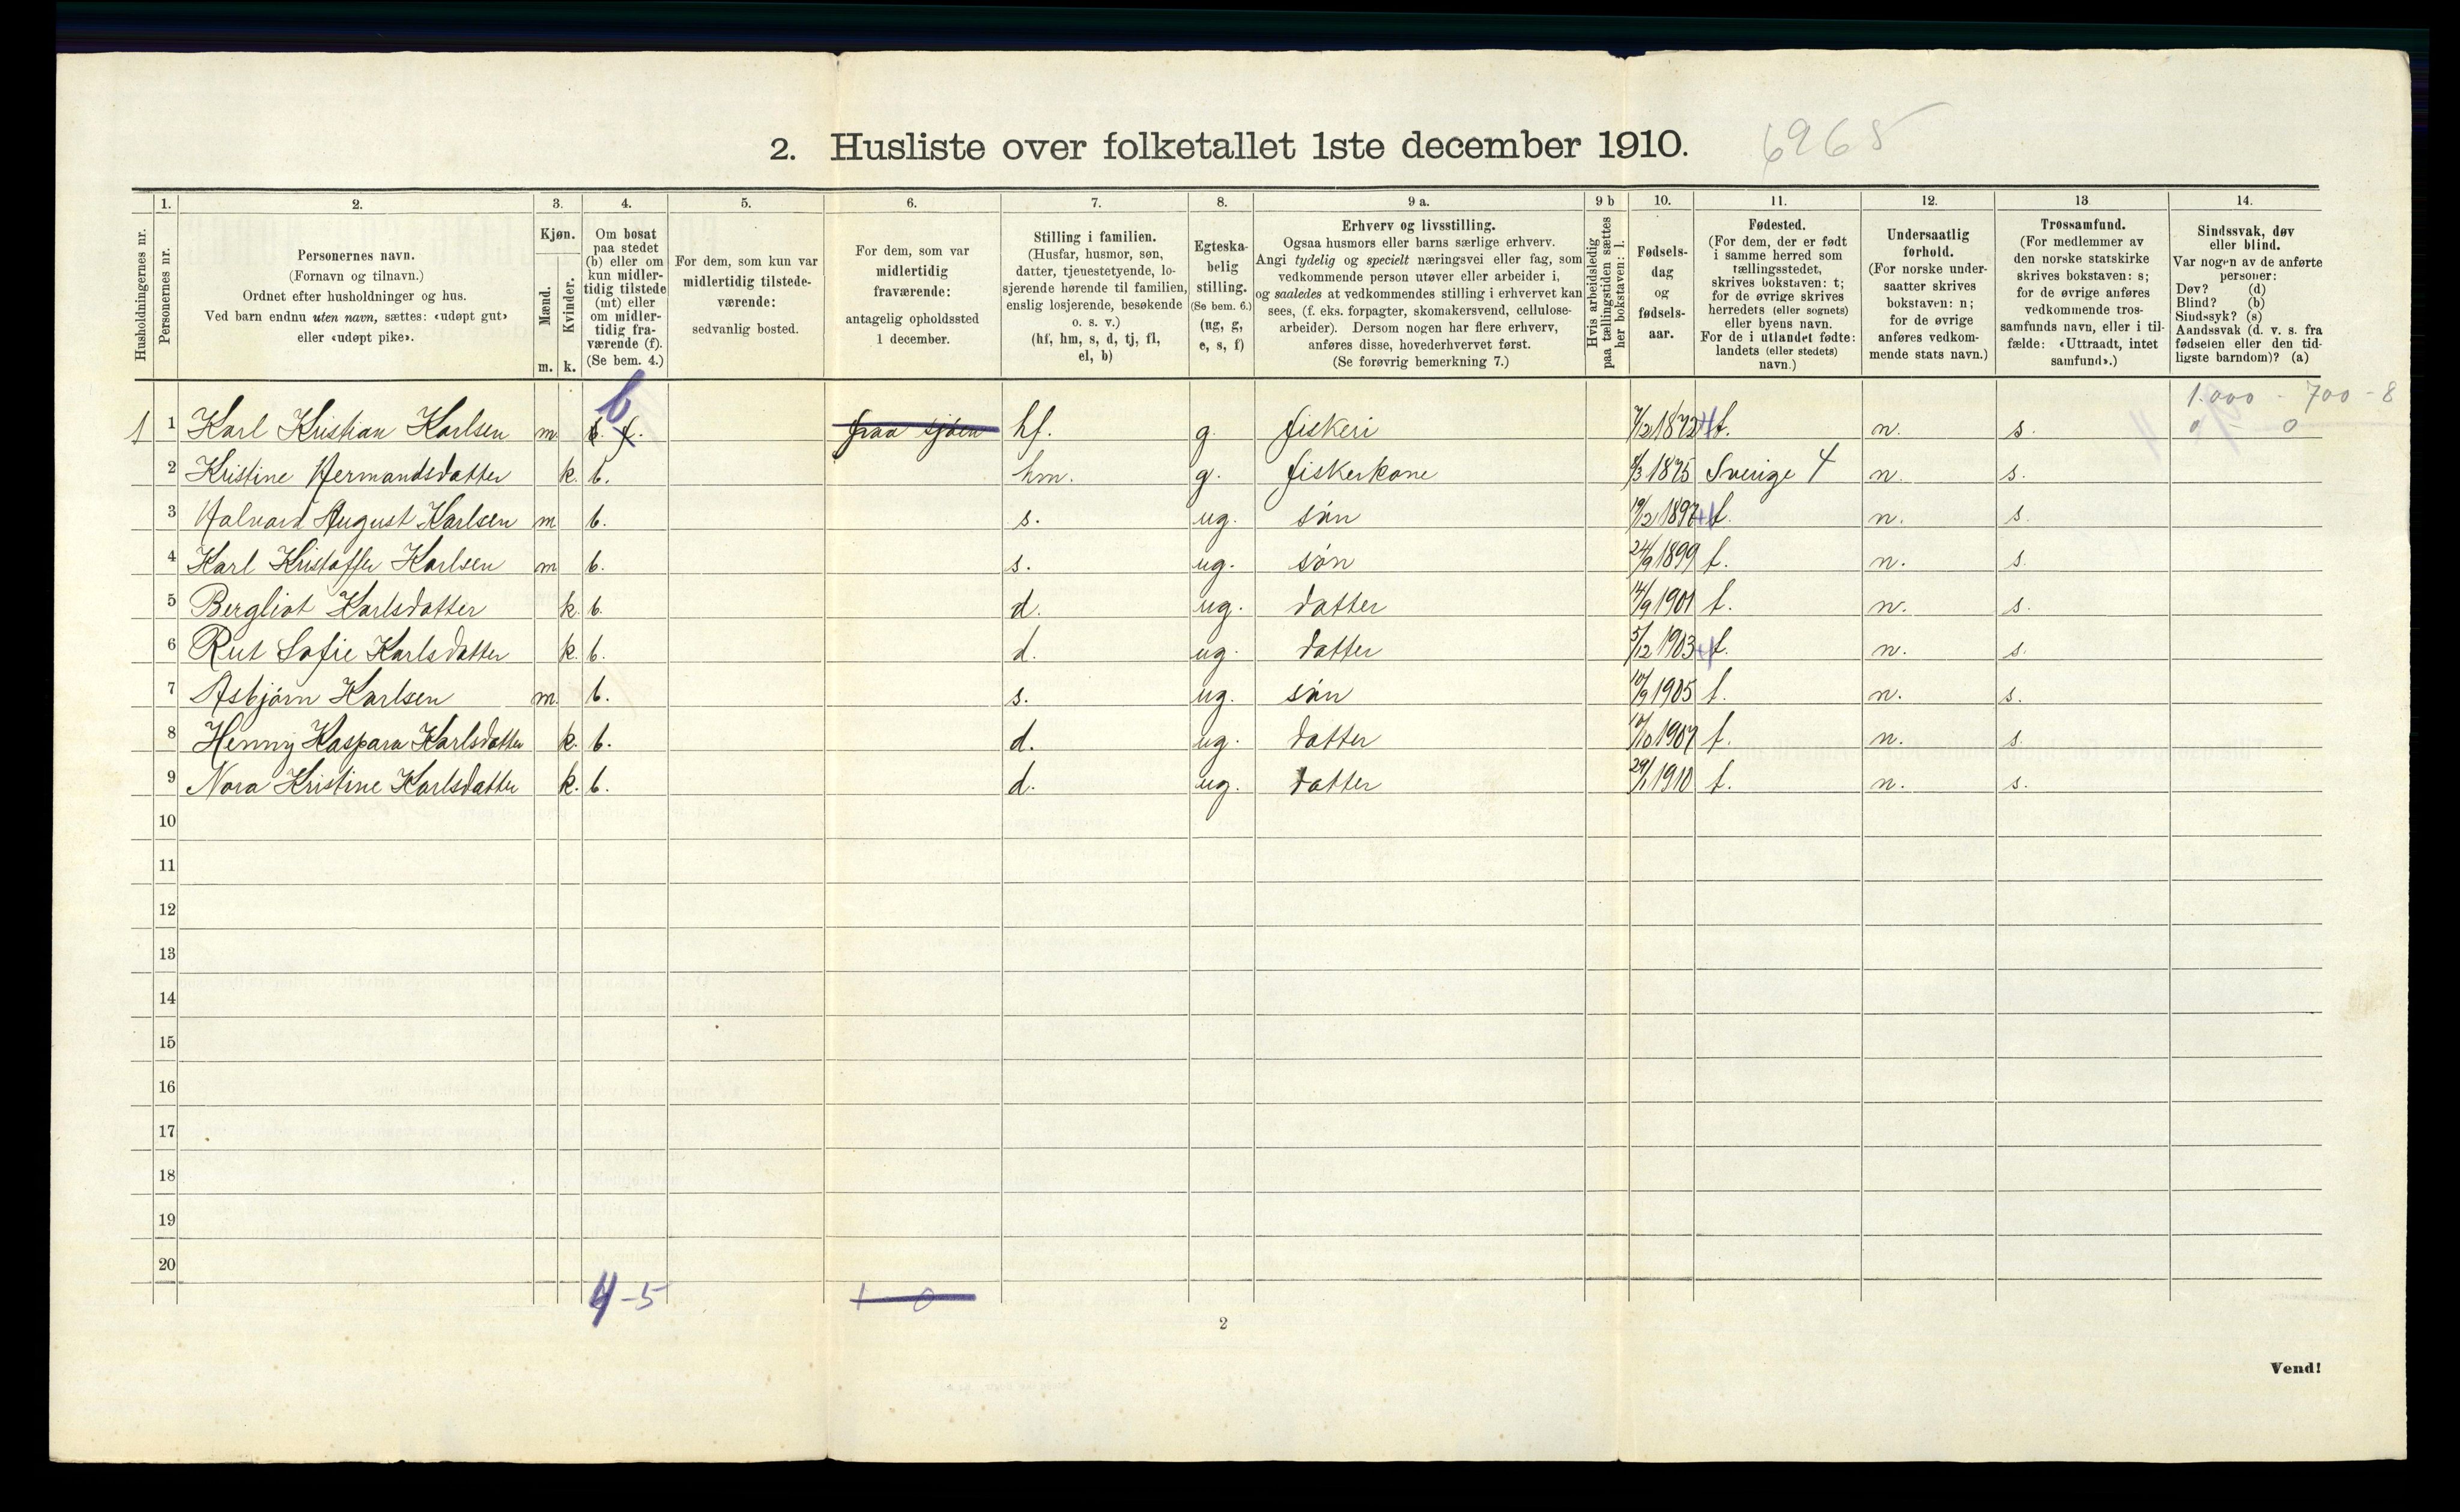 2. Husliste over folketallet 1ste december 1910. 6965
Husholdningernes nr.
1. Personernes nr.
2. Personernes navn. (Fornavn og tilnavn.) Ordnet efter husholdninger og hus. Ved barn endnu uten navn, sættes: «udøpt gut» eller «udøpt pike».
3. Kjøn. Mænd. m. Kvinder. k.
4. Om bosat paa stedet (b) eller om kun midlertidig tilstede (mt) eller om midlertidig fraværende (f). (Se bem. 4.)
5. For dem, som kun var midlertidig tilstedeværende: sedvanlig bosted.
6. For dem, som var midlertidig fraværende: antagelig opholdssted 1 december.
7. Stilling i familien. (Husfar, husmor, søn, datter, tjenestetyende, losjerende hørende til familien, enslig losjerende, besøkende o. s. v.) (hf, hm, s, d, tj, fl, el, b)
8. Egteskabelig stilling. (Se bem. 6.) (ug, g, e, s, f)
9 a. Erhverv og livsstilling. Ogsaa husmors eller barns særlige erhverv. Angi tydelig og specielt næringsvei eller fag, som vedkommende person utøver eller arbeider i, og saaledes at vedkommendes stilling i erhvervet kan sees, (f. eks. forpagter, skomakersvend, cellulosearbeider). Dersom nogen har flere erhverv, anføres disse, hovederhvervet først. (Se forøvrig bemerkning 7.)
9 b Hvis arbeidsledig paa tællingstiden sættes her bokstaven: l.
10. Fødselsdag og fødselsaar.
11. Fødested. (For dem, der er født i samme herred som tællingsstedet, skrives bokstaven: t; for de øvrige skrives herredets (eller sognets) eller byens navn. For de i utlandet fødte: landets (eller stedets) navn.)
12. Undersaatlig forhold. (For norske undersaatter skrives bokstaven: n; for de øvrige anføres vedkommende stats navn.)
13 Trossamfund. (For medlemmer av den norske statskirke skrives bokstaven: s; for de øvrige anføres vedkommende trossamfunds navn, eller i tilfælde: «Uttraadt, intet samfund».)
14. Sindssvak, døv eller blind. Var nogen av de anførte personer: Døv? (d) Blind? (b) Sindssyk? (s) Aandssvak (d. v. s. fra fødselen eller den tidligste barndom)? (a)
1.000 - 700 - 8
0 - 0
1 1 Karl Kristian Karlsen m. b. f. b fraa sjøen hf. g. fiskeri 7/12 1872 t. n. s.
2 Kristine Hermandsdatter k. b. hm. g. fiskerkone 8/3 1875 Sverige 4 n. s.
3 Halvard August Karlsen m b. s. ug. søn 19/2 1897 t. n. s.
4 Karl Kristoffer Karlsen m b. s. ug. søn 24/9 1899 t. n. s.
5 Bergliot Karlsdatter k. b. d. ug. datter 14/9 1901 t. n. s.
6 Rut Sofie Karlsdatter k. b. d. ug. datter 5/12 1903 t. n. s.
7 Asbjørn Karlsen m. b. s. ug. søn 10/9 1905 t. n. s.
8 Henny Kaspara Karlsdatter k. b. d. ug. datter 10/10 1907 t. n. s.
9 Nora Kristine Karlsdatter k. b. d. ug. datter 29/1 1910 t. n. s.
10
11
12
13
14
15
16
17
18
19
20
4-5 1 0
2
Vend!